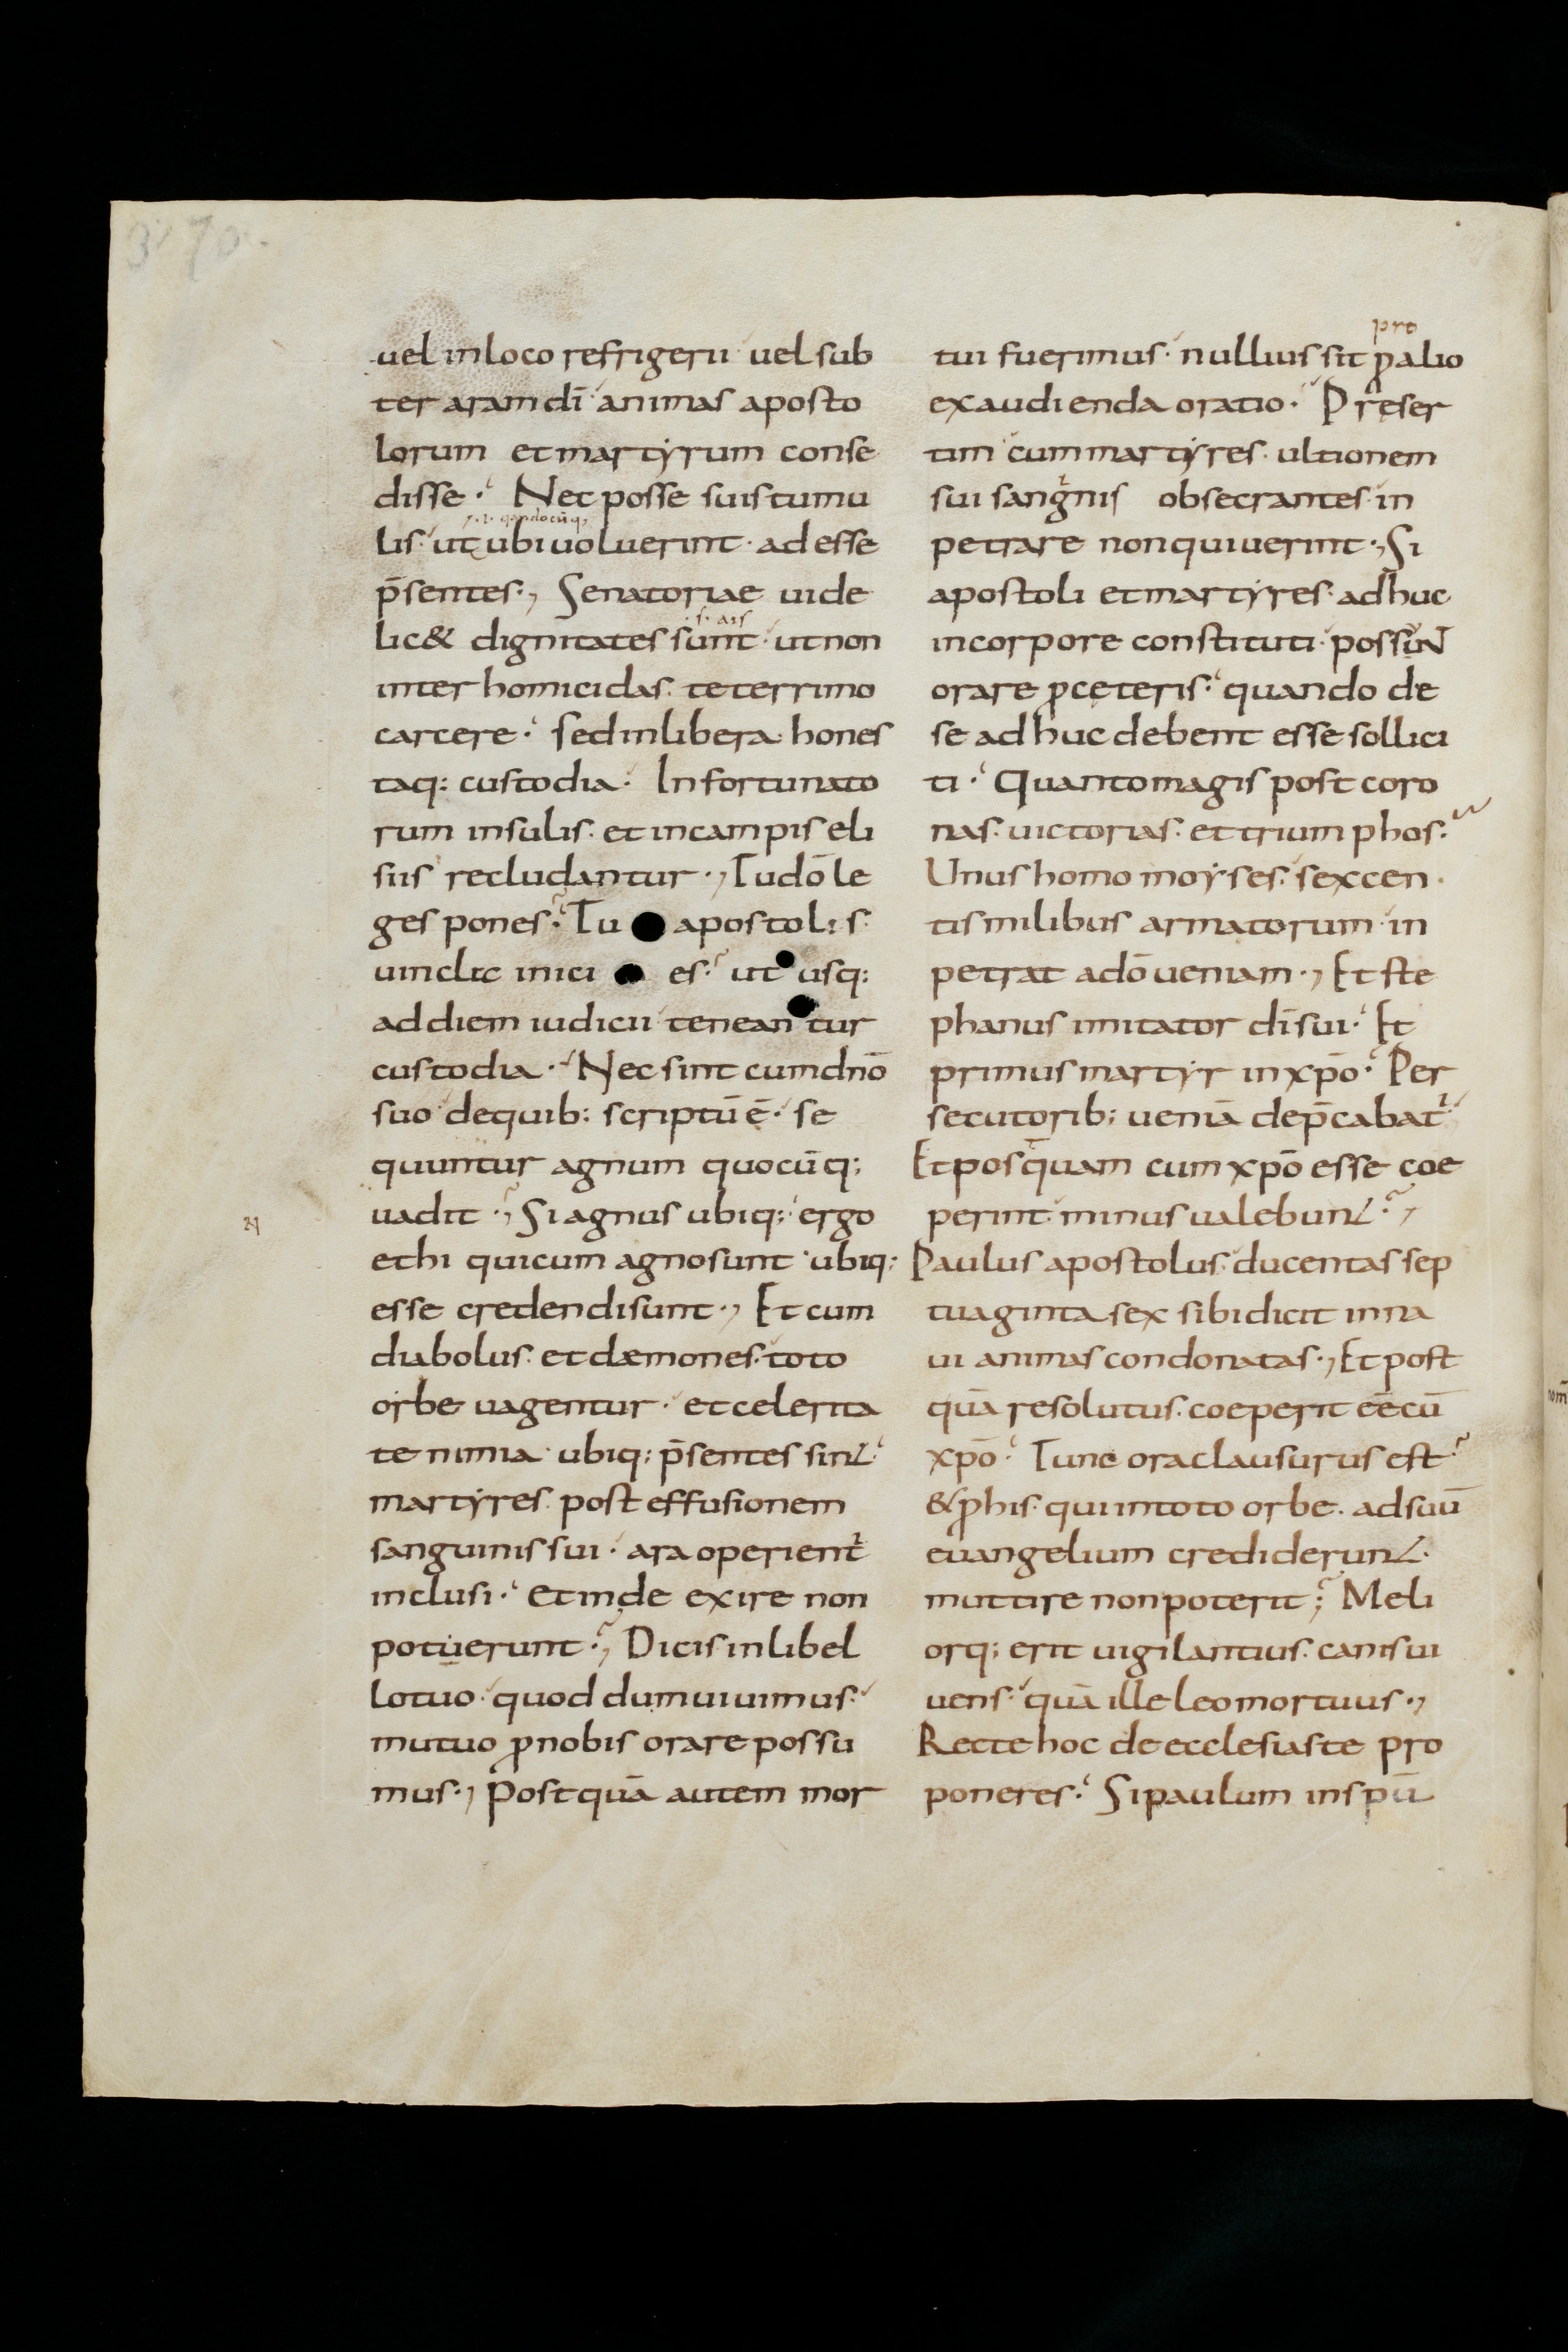 uel inloco refrigerii uel sub
ter aram dī animas aposto
lorum et martyrum conse
disse. Nec posse suis tumu
lis ut ubi uoluerint. adesse
p̄sentes., Senatoriae uide
lic& dignitates sunt. ut non
s. ais
inter homicidas. teterrimo
carcere. sed inlibera hones
taq: custodia. In fortunato
rum insulis. et incampis eli
siis recludantur., Tu dō le
ges pones. Tu apostolis
uincl&ic inici es. ut usq:
ad diem iudicii tenean tur
custodia. Nec sint cum dnō
suo. de quib: scriptū ē. se
quuntur agnum quocūq;
uadit., Si agnus ubiq; ergo
et hi qui cum agno sunt ubiq:
esse credendi sunt., Et cum
diabolus. et dæmones. toto
orbe uagentur. et celerita
te nimia ubiq; p̄sentes sint
martyres. post effusionem
sanguinis sui. ara operient̄
inclusi. Et inde exire non
potuerunt., Dicis in libel
lo tuo. quod dum uiuimus.
mutuo ꝓ nobis orare possu
mus., Postquā autem mor
pro
tui fuerimus. nullius sit ꝓ alio
exaudienda oratio. Preser
tim cum martyres. ultionem
sui sangnis obsecrantes. in
petrare non quiuerint., Si
apostoli et martyres. ad huc
incorpore constituti. possunt
orare ꝓ ceteris. quando de
se ad huc debent esse sollici
ti. Quanto magis post coro
nas. uictorias. et triumphos.
Unus homo moyses. sexcen
tis milibus armatorum in
petrat adō ueniam., Et ste
phanus imitator dī sui. Et
primus martyr in xpō. Per
secutorib; ueniā dep̄cabat̄
Et posquam cum xpō esse coe
perint. minus ualebunt.,
Paulus apostolus. ducentas sep
tuaginta sex sibi dicit inna
ui animas condonatas., Et post
quā resolutus. coeperit eē cū
xpō. Tunc ora clausurus est
& ꝓ his. qui in toto orbe. ad suū
euangelium crediderunt.
muttire non poterit; Meli
orq; erit uigilantius. canis ui
uens. quā ille leo mortuus.,
Recte hoc de ecclesiaste pro
poneres. Si paulum in spū